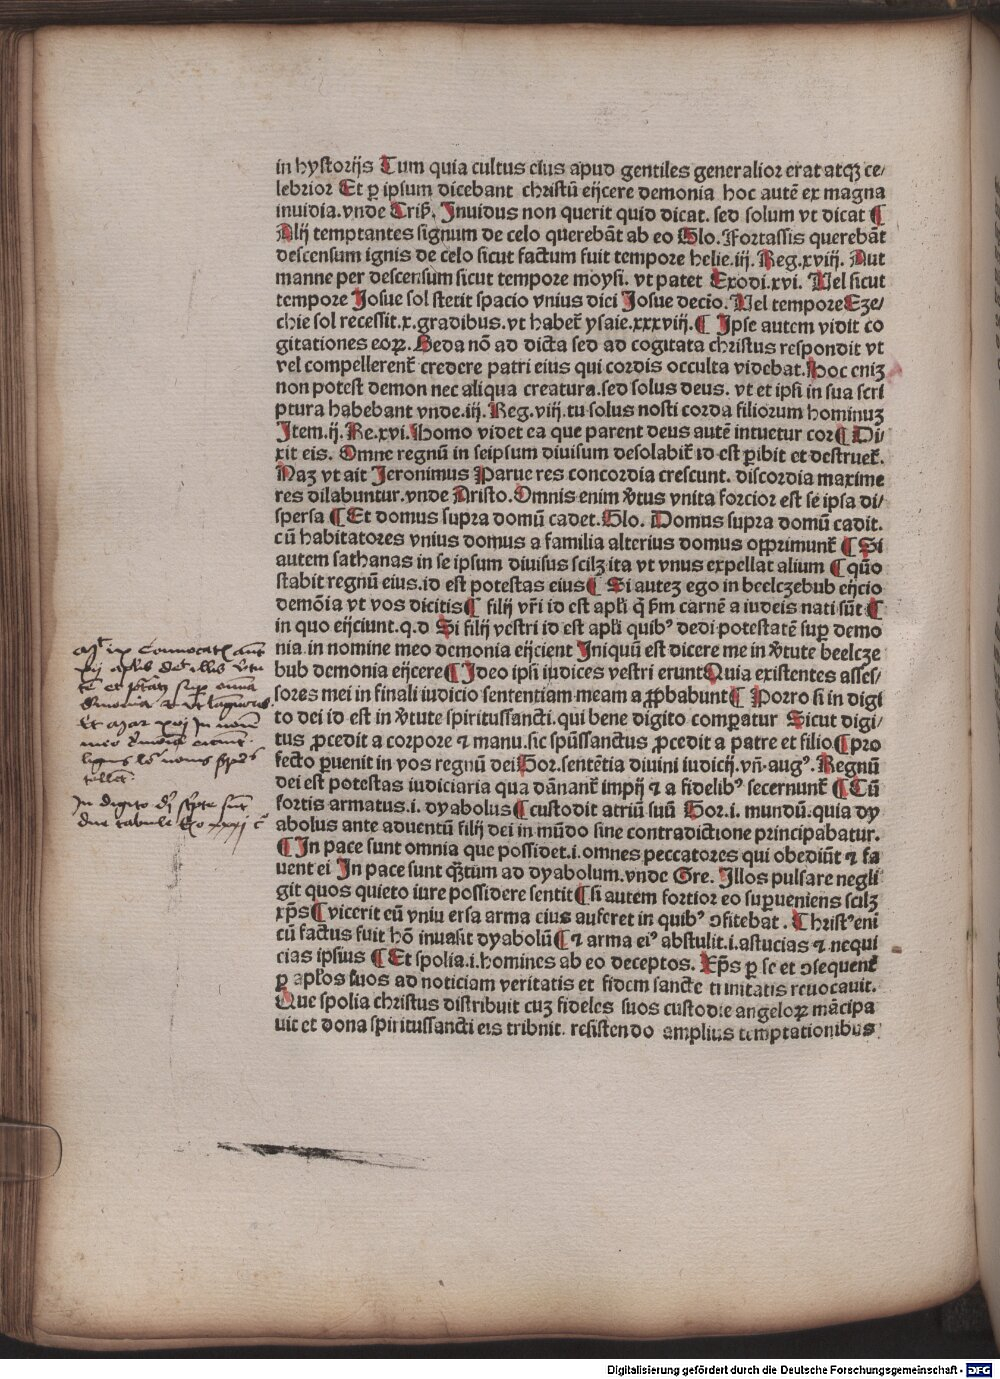 in hystorijs Tum quia cultus eius apud gentiles generalior erat atqꝫ ce/
lebrior Et ꝑ ipsum dicebant christū eijcere demonia hoc autē ex magna
inuidia. vnde Crisꝰ. Inuidus non querit quid dicat. sed solum vt dicat ¶
Alij temptantes signum de celo querebāt ab eo Glo. Fortassis querebāt
descensum ignis de celo sicut factum fuit tempore helie. iij. Reg. xviij. Aut
manne per descensum sicut tempore moysi. vt patet Exodi. xvi. Uel sicut
tempore Josue sol stetit spacio vnius diei Josue decio. Uel tempore Eze/
chie sol recessit. x. gradibus. vt habet᷑ ysaie. xxxviij. ¶ Ipse autem vidit co
gitationes eoꝝ. Beda nō ad dicta sed ad cogitata christus respondit vt
vel compellerent᷑ credere patri eius qui cordis occulta videbat. Hoc eniꝫ
non potest demon nec aliqua creatura. sed solus deus. vt et ipsi in sua scri
ptura habebant vnde. iij. Reg. viij. tu solus nosti corda filiorum hominuꝫ
Item. ij. Re. xvi. Homo videt ea que parent deus autē intuetur cor ¶ Di/
xit eis. Omne regnū in seipsum diuisum desolabit᷑ id est ꝑibit et destruet᷑.
Naꝫ vt ait Jeronimus Parue res concordia crescunt. discordia maxime
res dilabuntur. vnde Aristo. Omnis enim v̄tus vnita forcior est se ipsa di/
spersa ¶ Et domus supra domū cadet. Glo. Domus supra domū cadit.
cū habitatores vnius domus a familia alterius domus opprimunt᷑ ¶ Si
autem sathanas in se ipsum diuisus scilꝫ ita vt vnus expellat alium ¶ quō
stabit regnū eius. id est potestas eius ¶ Si auteꝫ ego in beelczebub eijcio
demōia vt vos dicitis ¶ filij vr̄i id est apl̄i q̄ ẜm carnē a iudeis nati sūt ¶
in quo eijciunt. q. d Si filij vestri id est apl̄i quibꝰ dedi potestatē suꝑ demo
nia. in nomine meo demonia eijcient Iniquū est dicere me in v̄tute beelcze
bub demonia eijcere ¶ Ideo ipsi iudices vestri erunt Quia existentes asses/
sores mei in finali iudicio sententiam meam aꝓbabunt ¶ Porro si in digi
to dei id est in v̄tute spiritussancti. qui bene digito comꝑatur Sicut digi/
tus ꝓcedit a corpore ⁊ manu. sic spūssanctus ꝓcedit a patre et filio ¶ pro
fecto ꝑuenit in vos regnū dei Gor. sentētia diuini iudicij. vn̄. augꝰ. Regnū
dei est potestas iudiciaria qua dānant᷑ impij ⁊ a fidelibꝰ secernunt᷑ ¶ Cū
fortis armatus. i. dyabolus ¶ custodit atriū suū Gor. i. mundū. quia dy
abolus ante aduentū filij dei in mūdo sine contradictione principabatur.
¶ In pace sunt omnia que possidet. i. omnes peccatores qui obediūt ⁊ fa
uent ei In pace sunt qꝫtum ad dyabolum. vnde Gre. Illos pulsare negli
git quos quieto iure possidere sentit ¶ si autem fortior eo suꝑueniens scilꝫ
xp̄s ¶ vicerit eū vniuersa arma eius auferet in quibꝰ ꝯfitebat. Christꝰ eni
cū factus fuit hō inuasit dyabolū ¶ ⁊ arma eiꝰ abstulit. i. astucias ⁊ nequi
cias ipsius ¶ Et spolia. i. homines ab eo deceptos. Xp̄s ꝑ se et ꝯsequent᷑
ꝑ apl̄os suos ad noticiam veritatis et fidem sancte trinitatis reuocauit.
Que spolia christus distribuit cuꝫ fideles suos custodie angeloꝝ mācipa
uit et dona spiritussancti eis tribuit. resistendo amplius temptationibus
tollet
In digito dei scripte sunt
due tabule Exo xxxj c̄
Digitalisierung gefördert durch die Deutsche Forschungsgemeinschaft - DFG